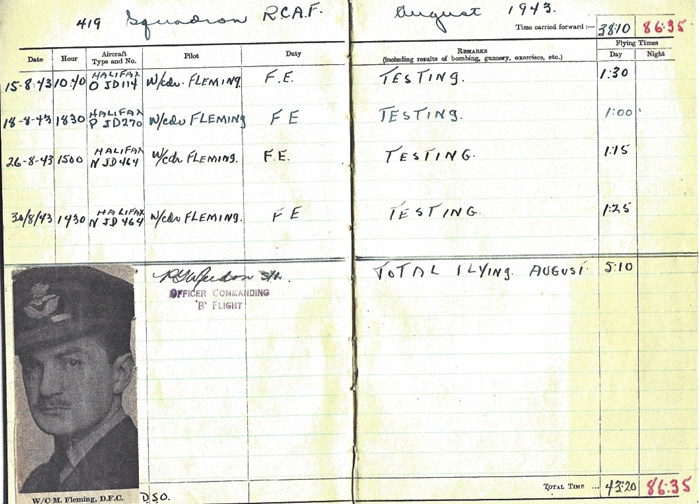 419 Squadron R.C.A.F. August 1943.
Time carried forward :— 38:10 86:35
Date Hour Aircraft Type and No. Pilot Duty REMARKS (including results of bombing, gunnery, exercises, etc.) Flying Times
Day Night
15-8-43 10:40 HALIFAX O JD114 W/cdr FLEMING. F.E. TESTING. 1:30
18-8-43 1830 HALIFAX P JD270 W/cdr FLEMING F E TESTING. 1:00
26-8-43 1500 HALIFAX N JD464 W/cdr FLEMING. F.E. TESTING. 1:15
30/8/43 1430 HALIFAX N JD464 W/cdr FLEMING. F E TESTING. 1:25
TOTAL FLYING. AUGUST. 5:10
OFFICER COMMANDING
'B' FLIGHT
W/C M. Fleming, D.F.C. D.S.O.
TOTAL TIME ... 43:20 86:35